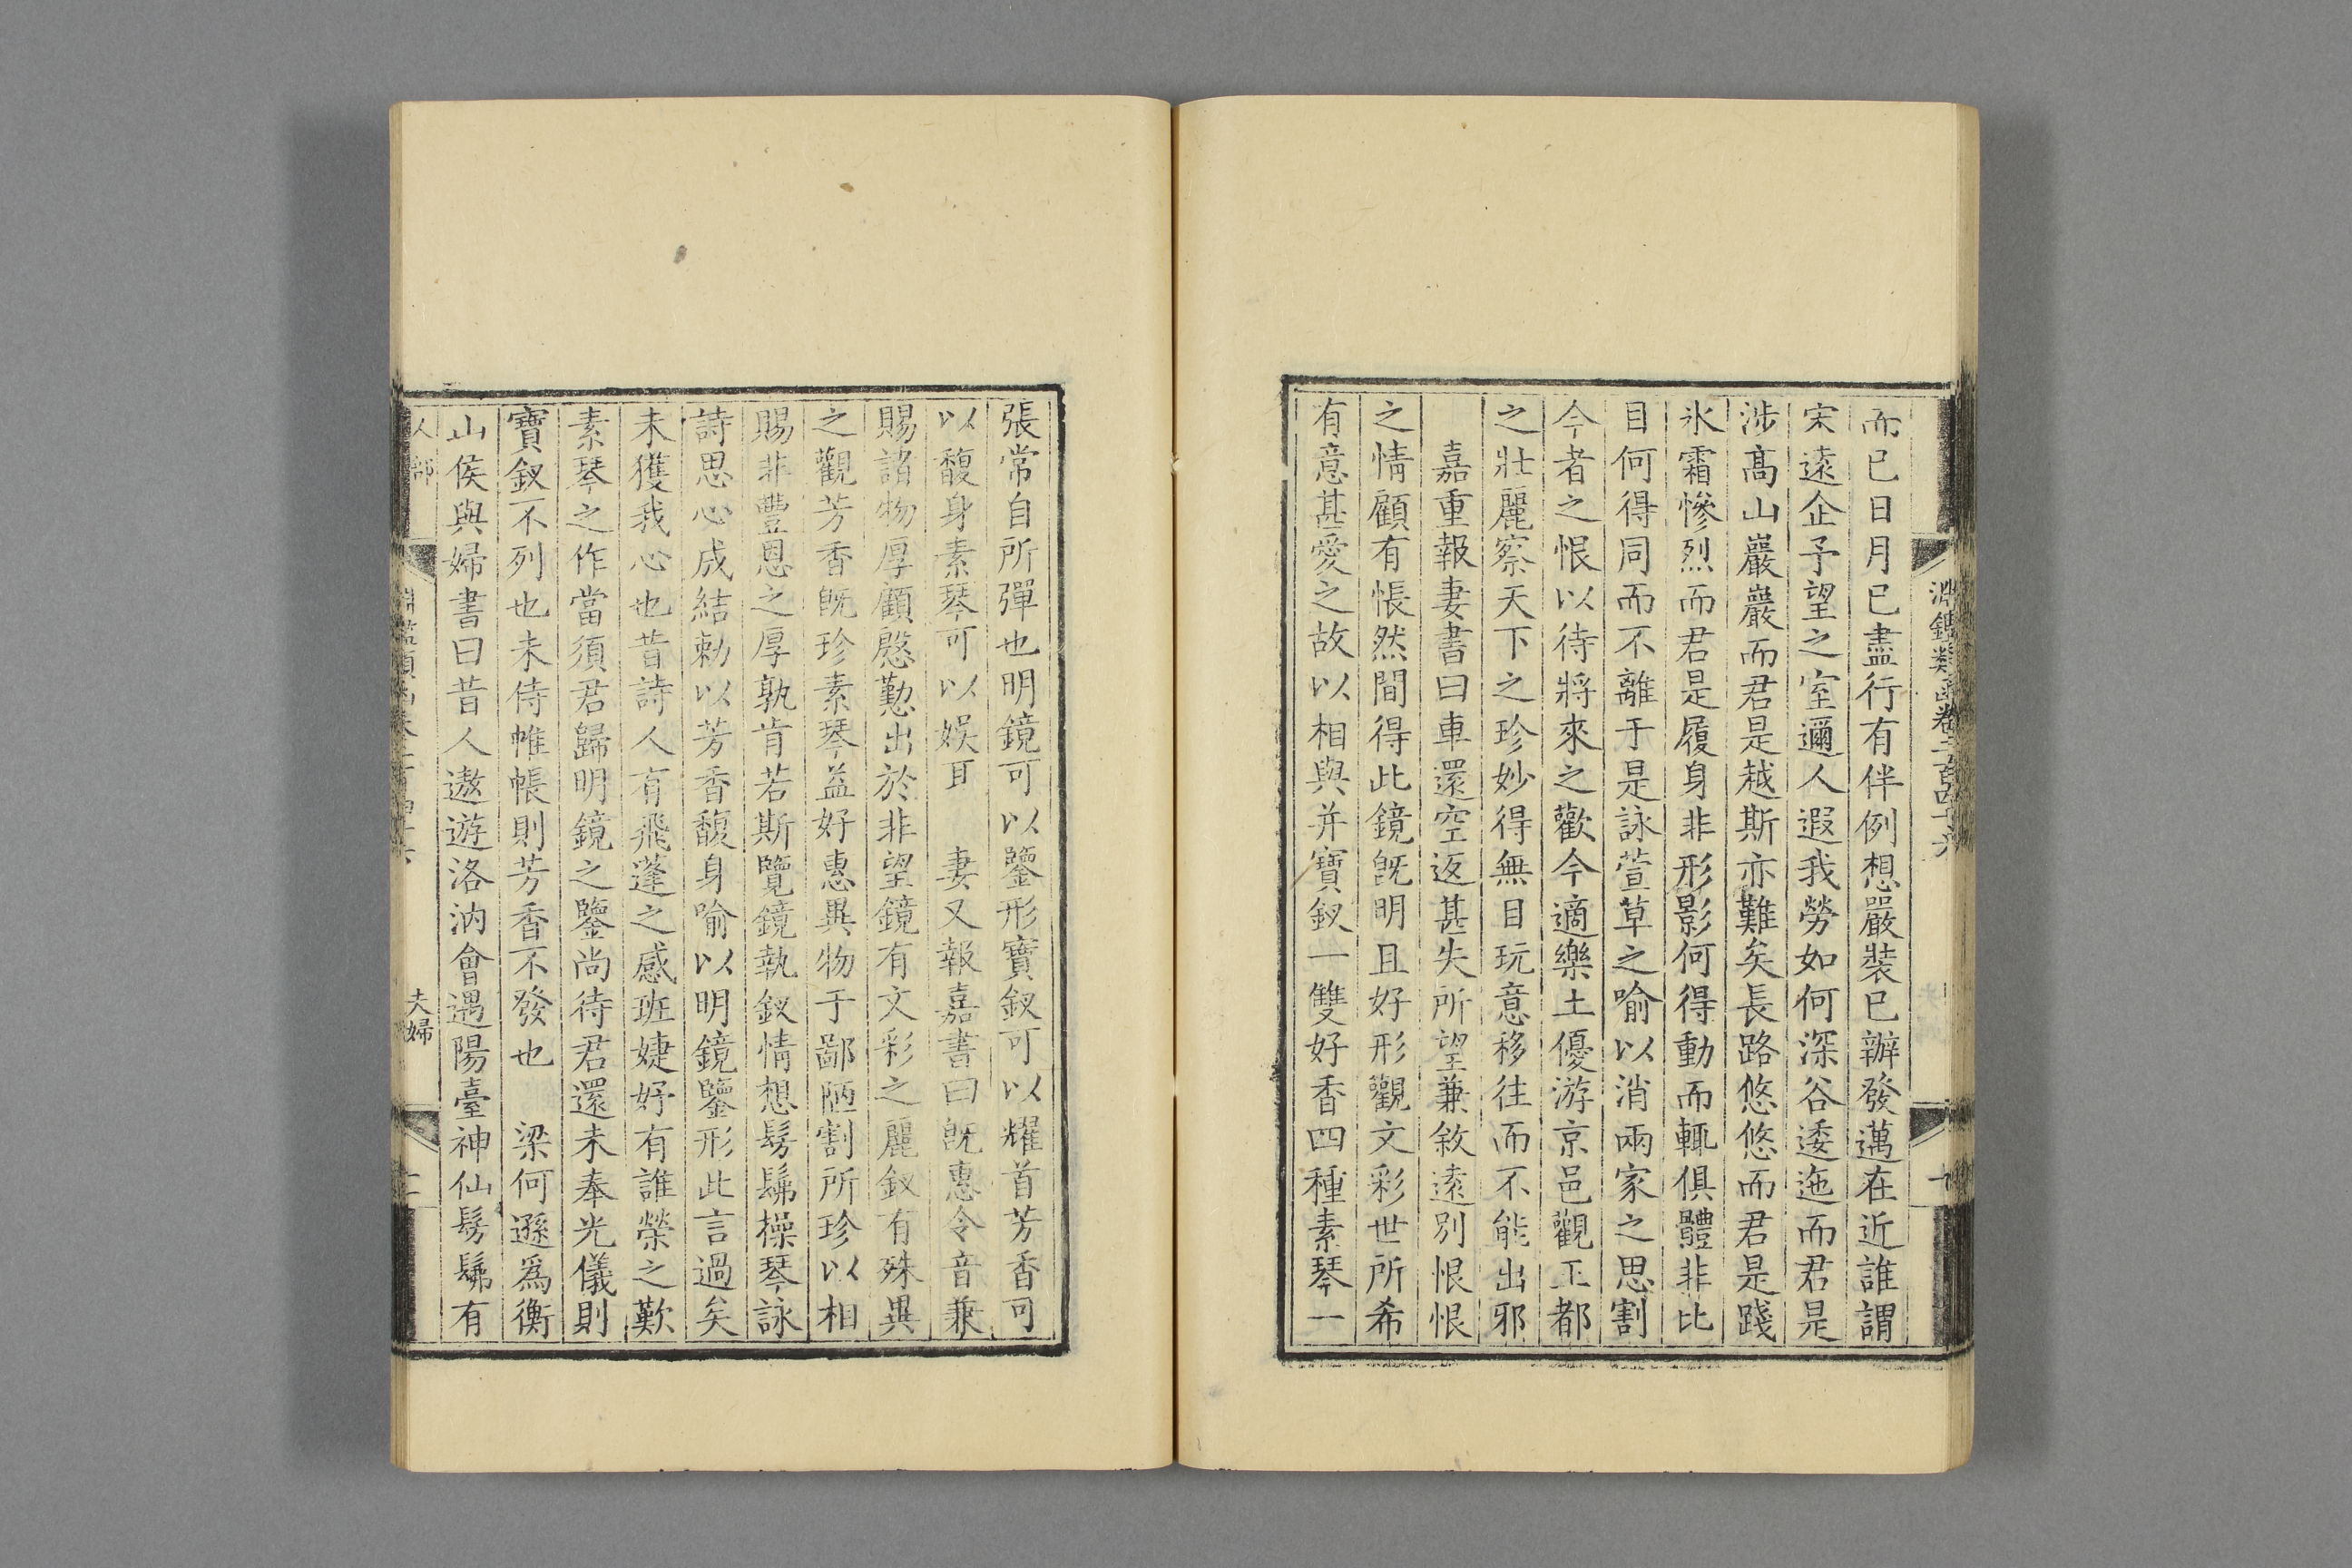 淵鑑類函卷二百四十六
而已日月已盡行有伴例想嚴裝已辦發邁在近誰謂
宋遠企予望之室邇人遐我勞如何深谷逶迤而君是
涉高山巖巖而君是越斯亦難矣長路悠悠而君是踐
氷霜慘烈而君是履身非形影何得動而輒俱體非比
目何得同而不離于是詠萱草之喻以消兩家之思割
今者之恨以待將來之歡今適樂土優游京邑觀王都
之壯麗察天下之珍妙得無目玩意移往而不能出邪
嘉重報妻書曰車還空返甚失所望兼敘遠別恨恨
之情顧有悵然間得此鏡旣明且好形觀文彩世所希
有意甚愛之故以相與并寶釵一雙好香四種素琴一
張常自所彈也明鏡可以鑒形寶釵可以耀首芳香可
以馥身素琴可以娛耳　妻又報嘉書曰旣惠令音兼
賜諸物厚顧慇懃出於非望鏡有文彩之麗釵有殊異
之觀芳香旣珍素琴益好惠異物于鄙陋割所珍以相
賜非豐恩之厚孰肯若斯覽鏡執釵情想髣髴操琴詠
詩思心成結勅以芳香馥身喻以明鏡鑒形此言過矣
未獲我心也昔詩人有飛蓬之感班婕妤有誰榮之歎
素琴之作當須君歸明鏡之鑒尚待君還未奉光儀則
寶釵不列也未侍帷帳則芳香不發也　梁何遜爲衡
山侯與婦書曰昔人遨遊洛汭會遇陽臺神仙髣髴有
人部
夫婦